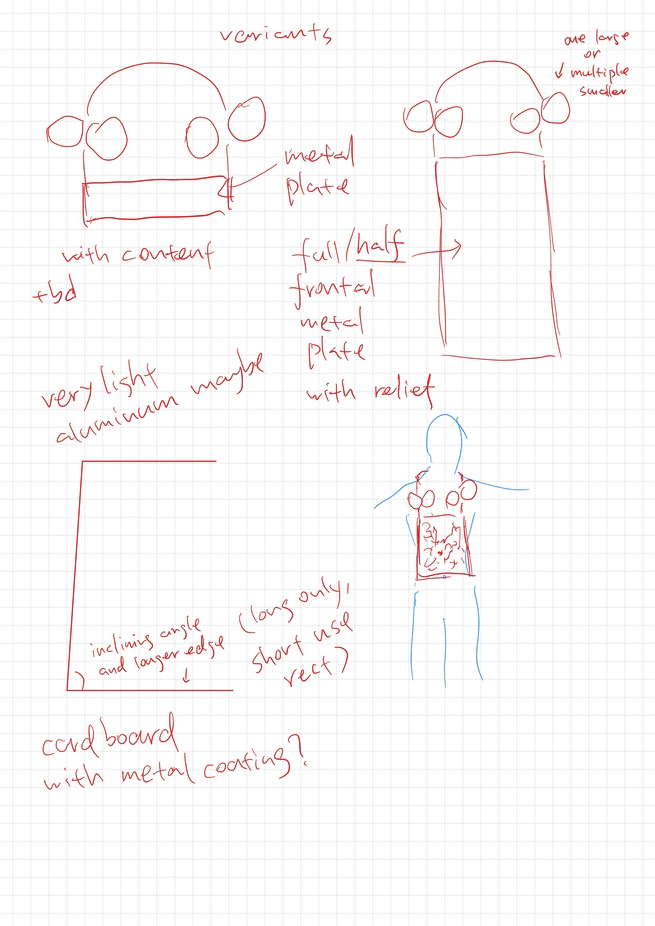 variants
one large
or
multiple
smaller
metal
plate
with content
tbd
full/half
frontal
metal
plate
with relief
very light
aluminum maybe
inclining angle
and longer edge
(long only,
short use
rect)
cardboard
with metal coating?